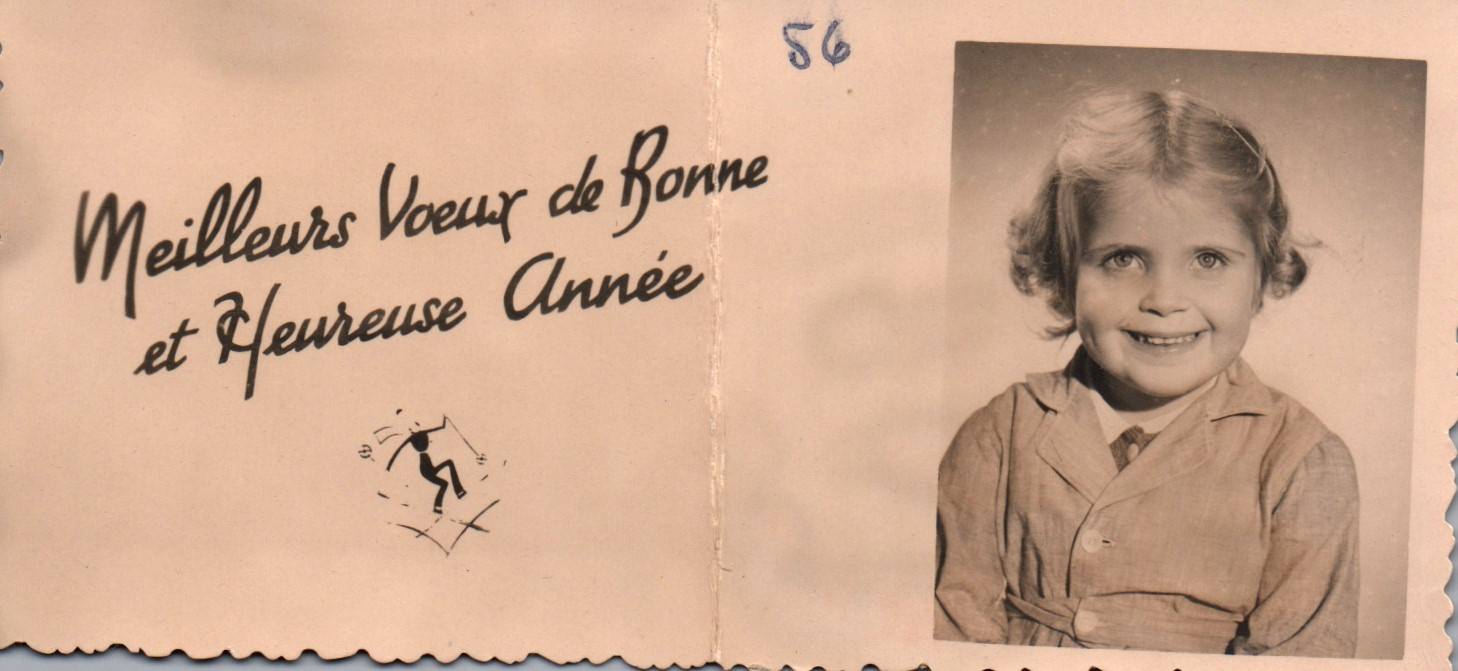 56
Meilleurs Voeux de Bonne
et Heureuse Année